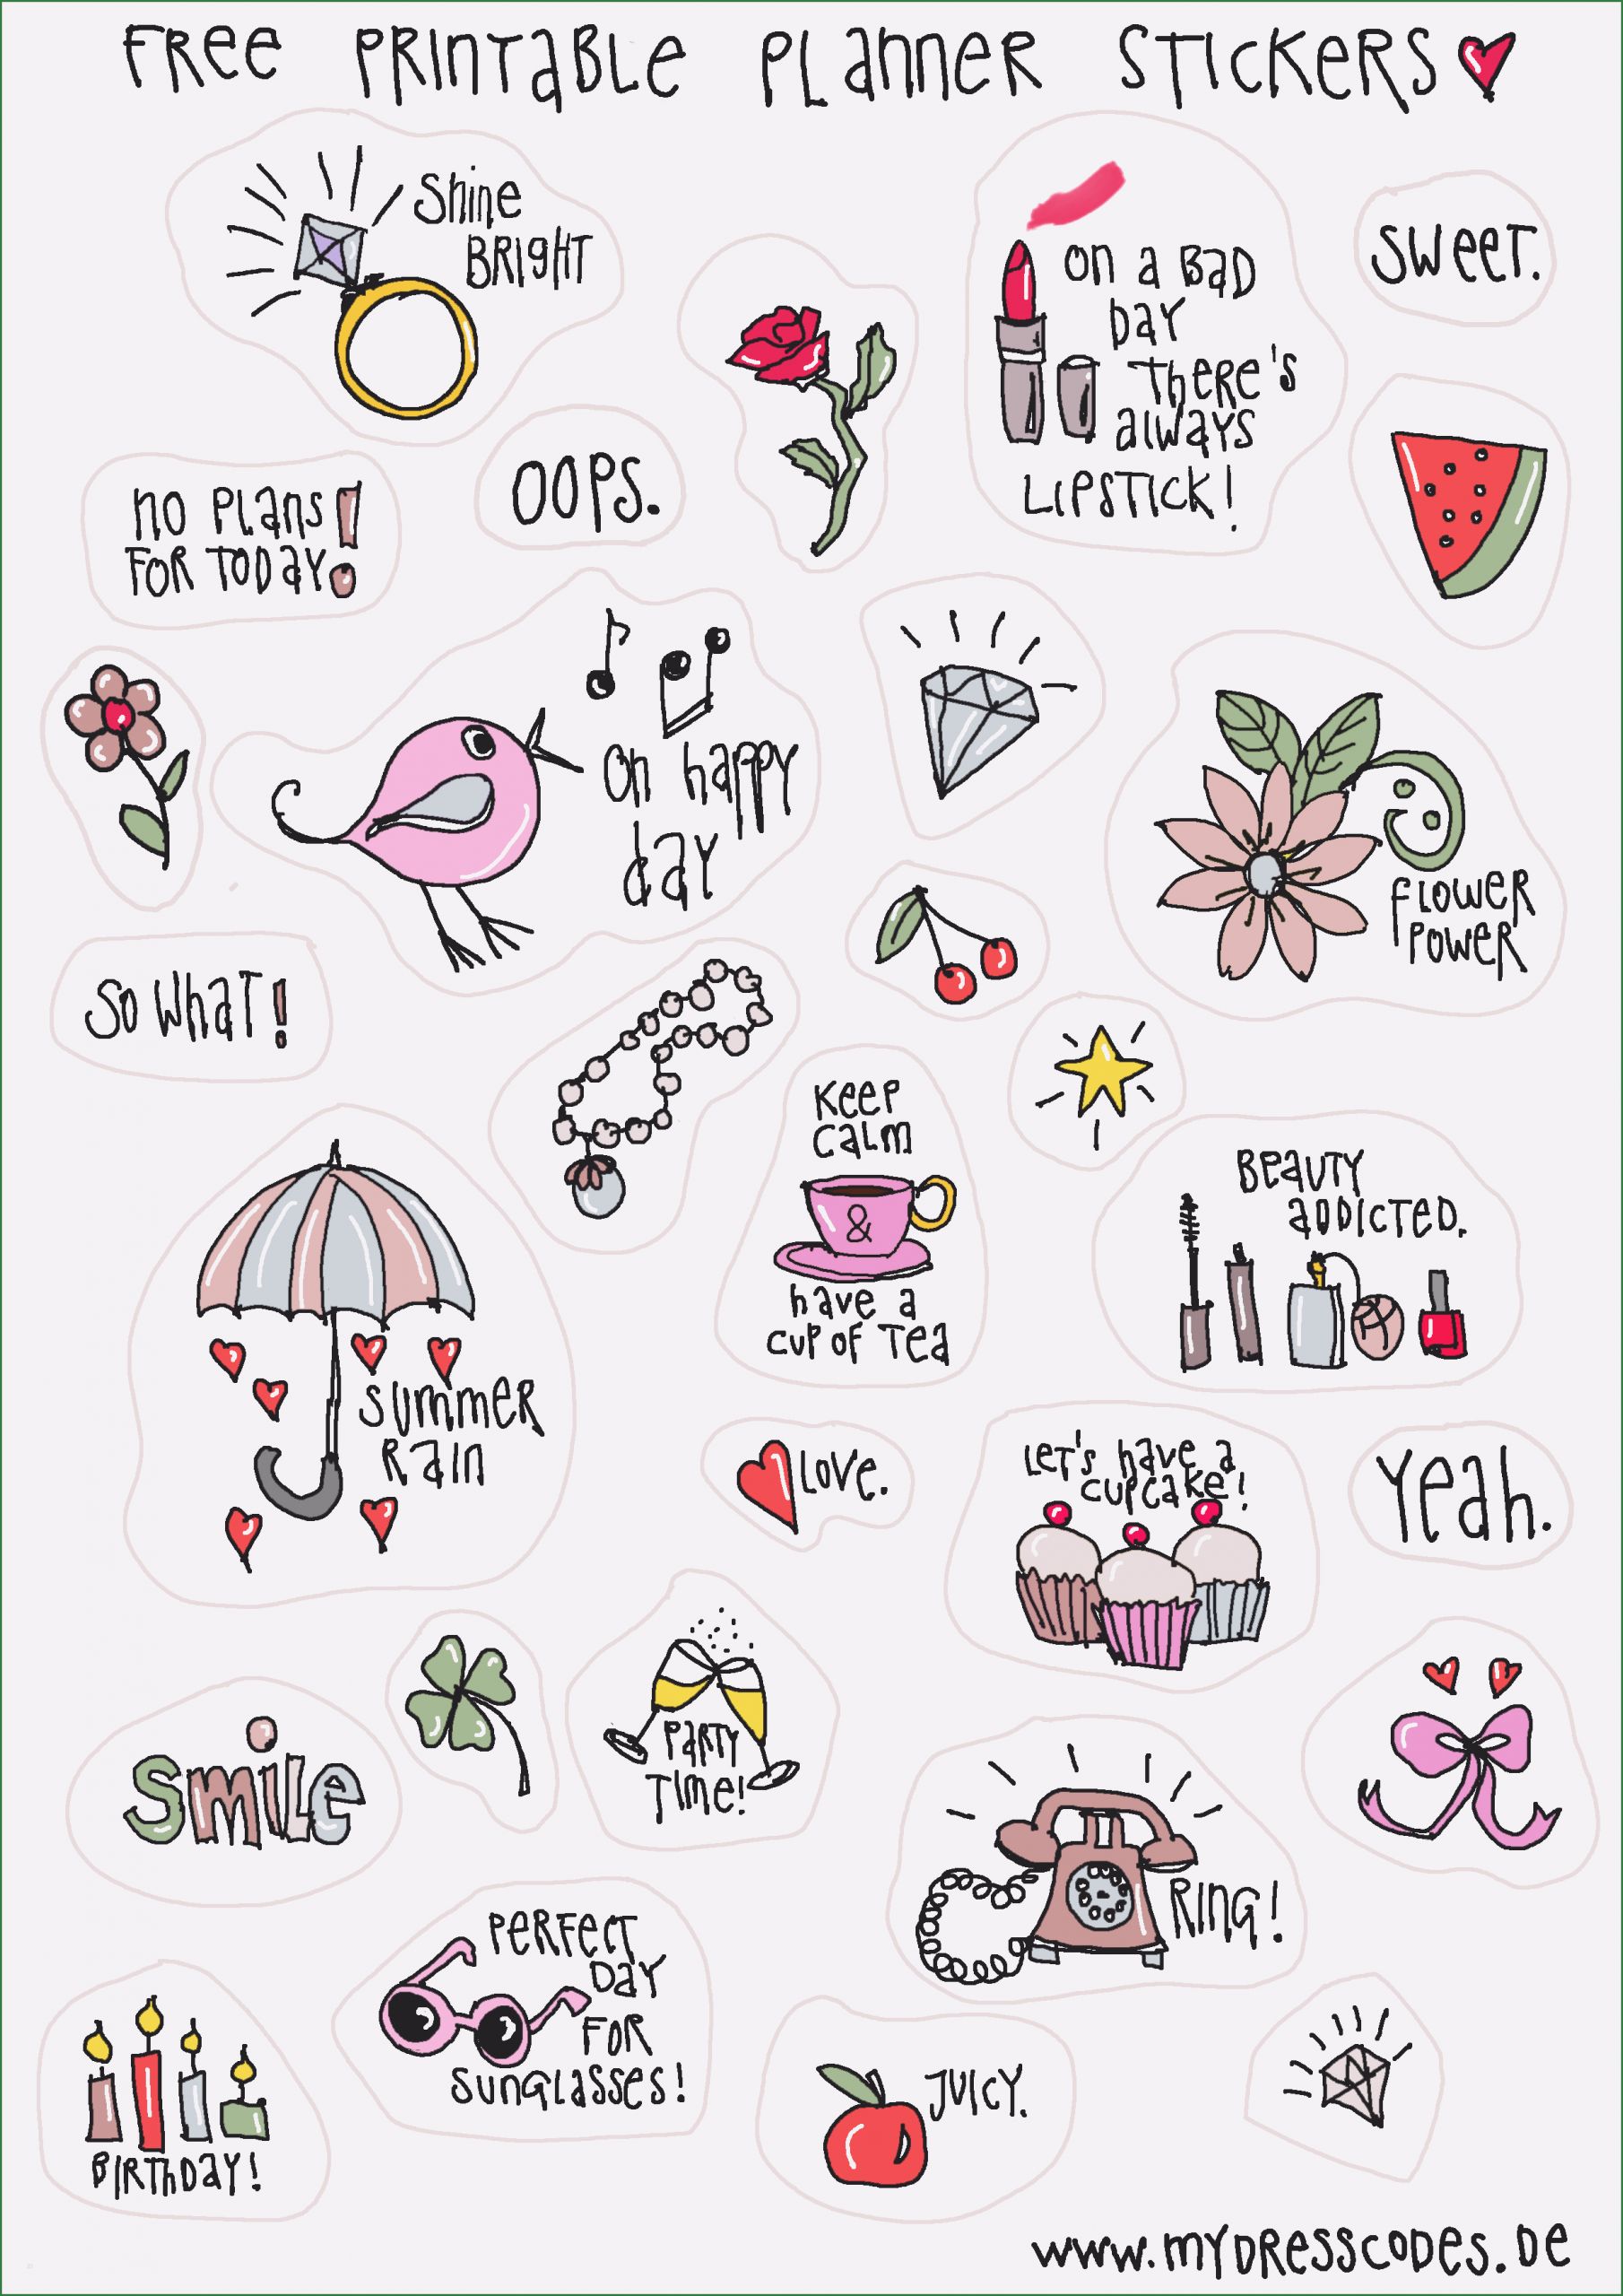 FREE PRINTABLE PLANNER STICKERS
Shine
BRIGHT
on a BaD
DaY
THERE'S
always
LIPSTICK!
SWEET.
OOPS.
no PLans!
FOR TODaY.
on happy
day
FLOWER
POWER
SO WHaT!
KEEP
CaLM
&
have a
CUP OF Tea
BEAUTY
aDDICTED.
SUMMER
Rain
LOVE.
LET'S have a
cupcake!
Yeah.
Smile
PaRTY
TIME!
RING!
PERFECT
DaY
FOR
SUNGLASSES!
JUICY.
BIRTHDaY!
www.MYDRESSCODES.DE